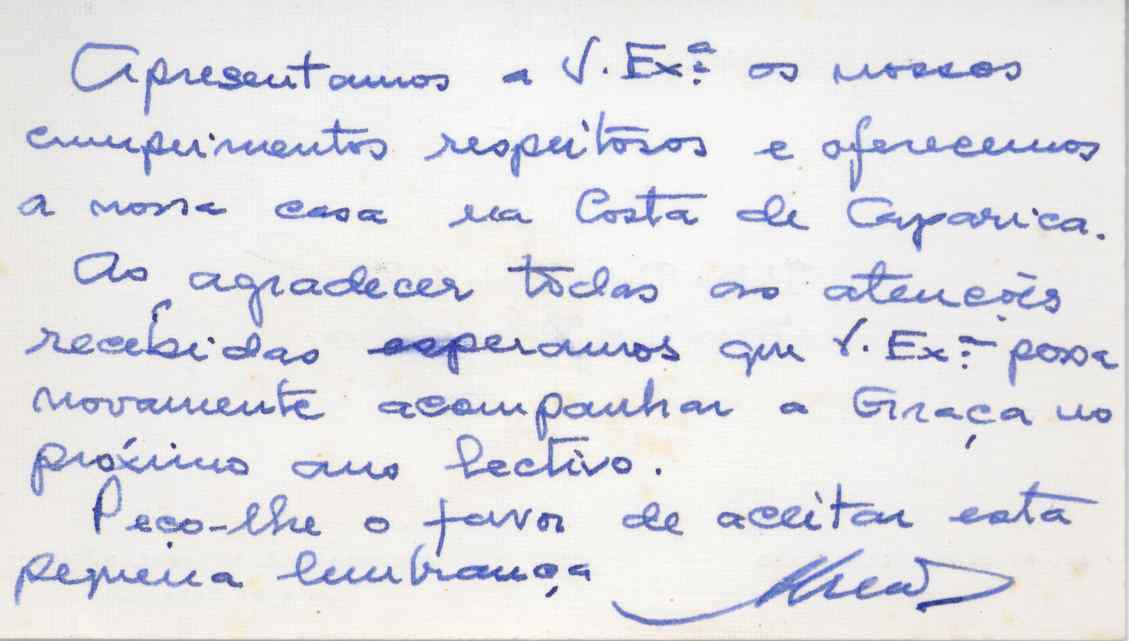 Apresentamos a V. Ex.ª os nossos
cumprimentos respeitosos e oferecemos
a nossa casa na Costa de Caparica.
Ao agradecer todas as atenções
recebidas esperamos que V. Ex.ª possa
novamente acompanhar a Graça no
próximo ano lectivo.
Peço-lhe o favor de aceitar esta
pequena lembrança